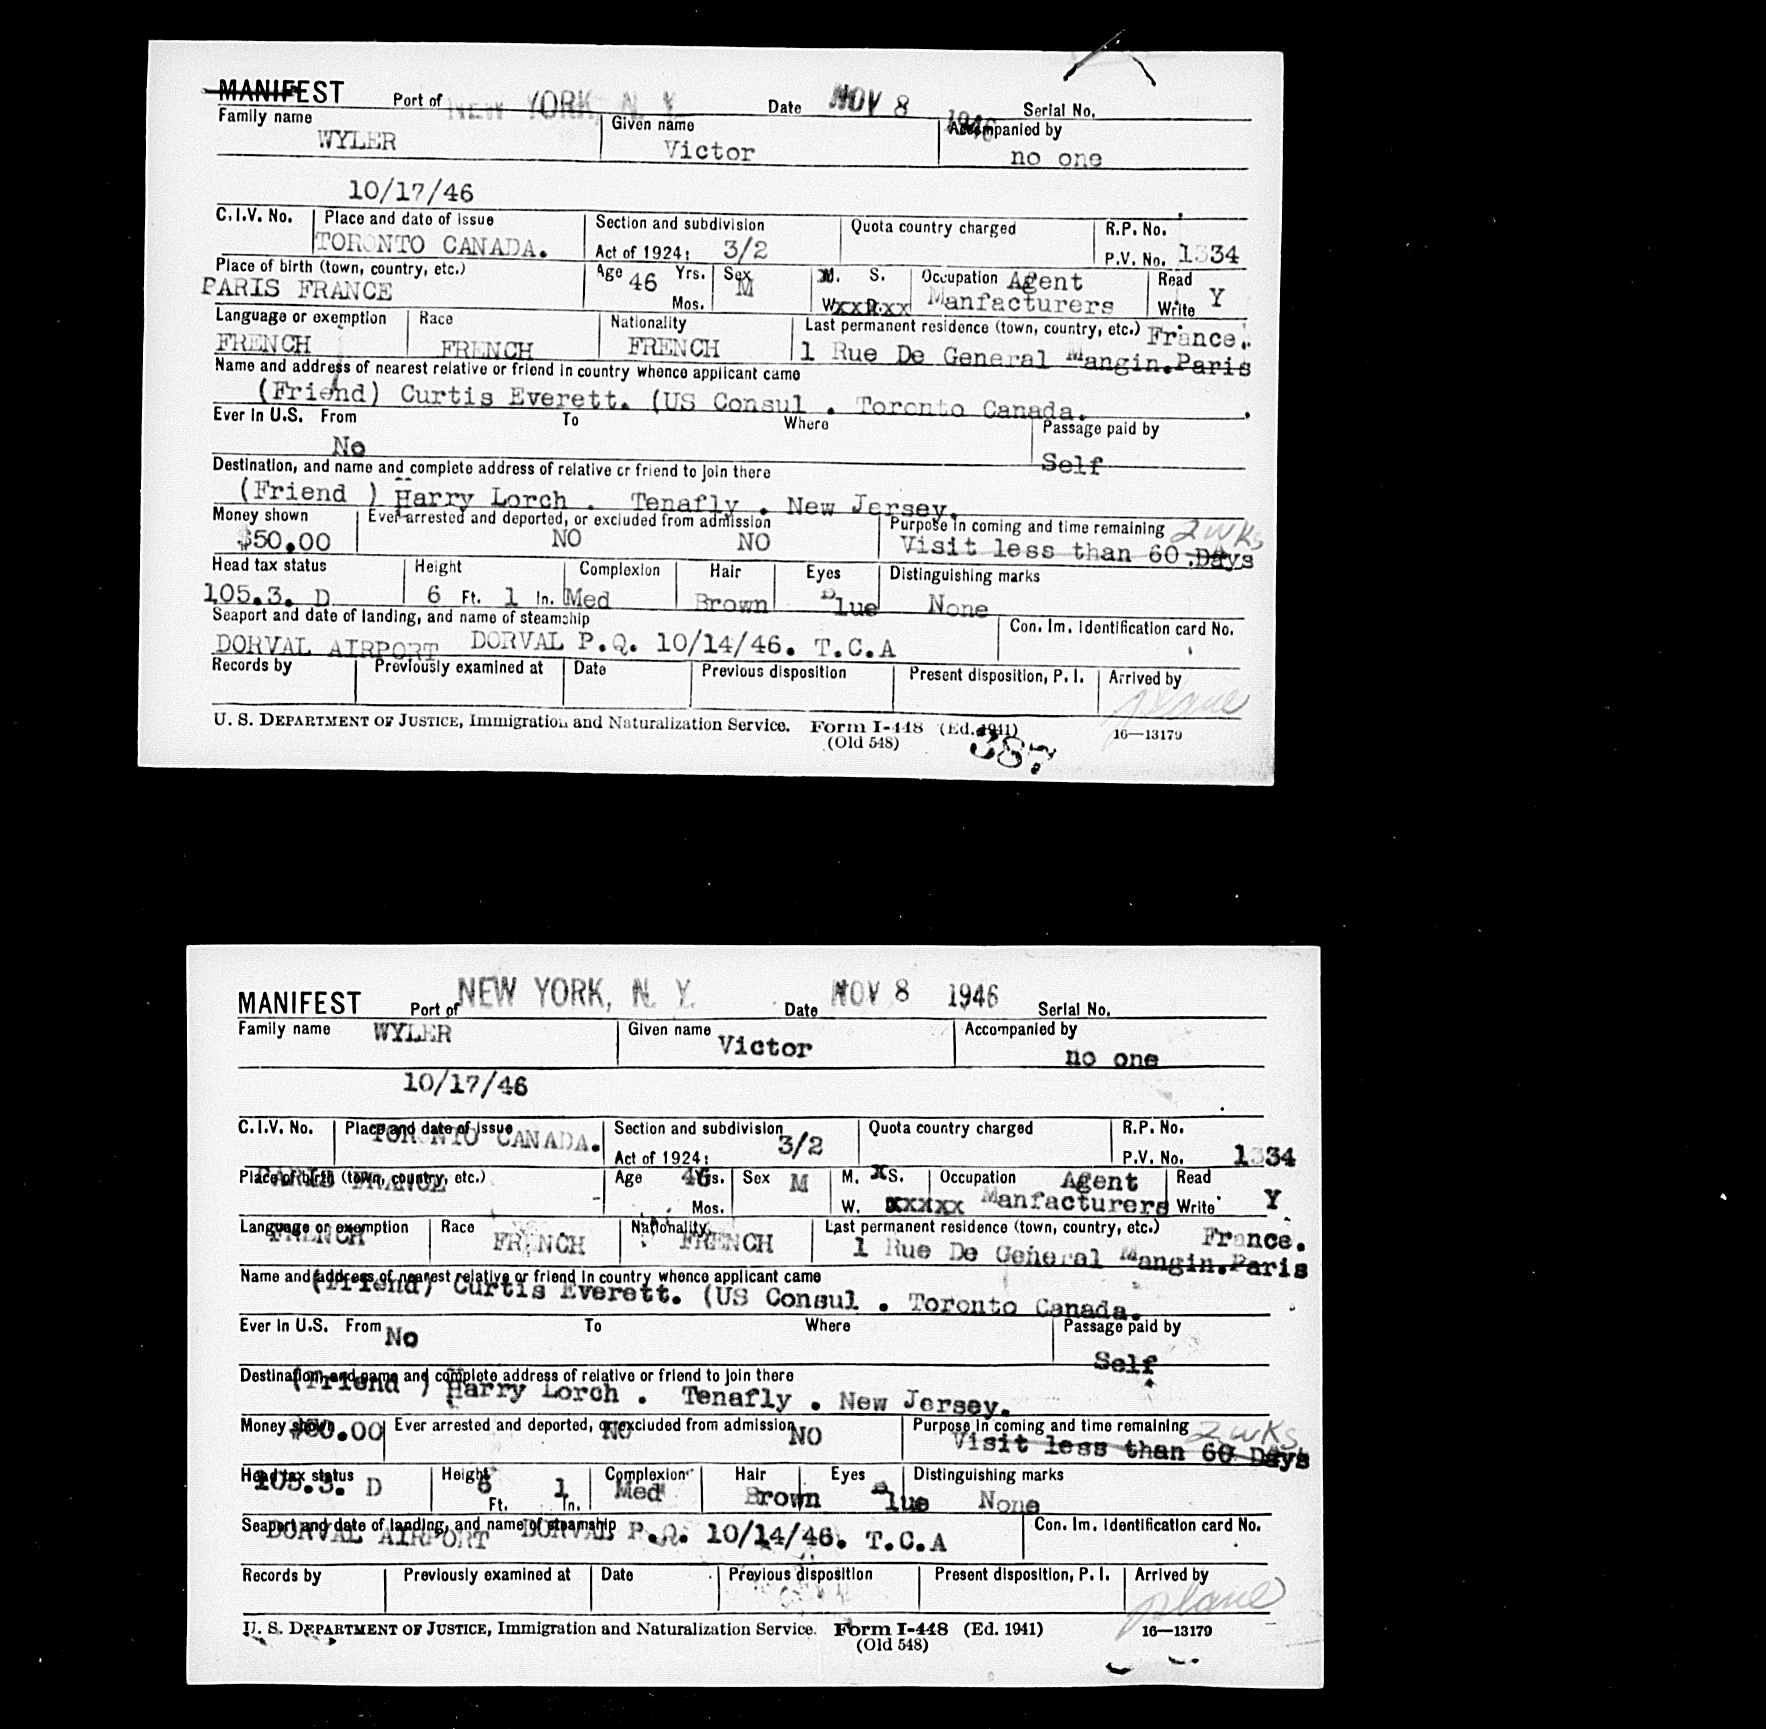 MANIFEST Port of NEW YORK, N. Y. Date NOV 8 1946 Serial No.
Family name Given name Accompanied by
WYLER Victor no one
10/17/46
C.I.V. No. Place and date of issue Section and subdivision Quota country charged R.P. No.
TORONTO CANADA. Act of 1924: 3/2 P.V. No. 1334
Place of birth (town, country, etc.) Age 46 Yrs. Sex M M. S. Occupation Agent Read
PARIS FRANCE Mos. W. xx D. xx Manfacturers Write Y
Language or exemption Race Nationality Last permanent residence (town, country, etc.) France.
FRENCH FRENCH FRENCH 1 Rue De General Mangin.Paris
Name and address of nearest relative or friend in country whence applicant came
(Friend) Curtis Everett. (US Consul . Toronto Canada.
Ever in U.S. From To Where Passage paid by
No Self
Destination, and name and complete address of relative or friend to join there
(Friend ) Harry Lorch . Tenafly . New Jersey.
Money shown Ever arrested and deported, or excluded from admission Purpose in coming and time remaining 2 wks
$50.00 NO NO Visit less than 60 Days
Head tax status Height Complexion Hair Eyes Distinguishing marks
105.3. D 6 Ft. 1 In. Med Brown Blue None
Seaport and date of landing, and name of steamship Con. Im. Identification card No.
DORVAL AIRPORT DORVAL P.Q. 10/14/46. T.C.A
Records by Previously examined at Date Previous disposition Present disposition, P. I. Arrived by
plane
U. S. DEPARTMENT OF JUSTICE, Immigration and Naturalization Service. Form I-448 (Ed. 1941) 16—13179
(Old 548) 387
MANIFEST Port of NEW YORK, N. Y. Date NOV 8 1946 Serial No.
Family name WYLER Given name Victor Accompanied by
no one
10/17/46
C.I.V. No. Place and date of issue Section and subdivision Quota country charged R.P. No.
TORONTO CANADA. Act of 1924: 3/2 P.V. No. 1334
Place of birth (town, country, etc.) Age 46 Yrs. Sex M M. X S. Occupation Agent Read
PARIS FRANCE Mos. W. xxxxx Manfacturers Write Y
Language or exemption Race Nationality Last permanent residence (town, country, etc.) France.
FRENCH FRENCH FRENCH 1 Rue De General Mangin.Paris
Name and address of nearest relative or friend in country whence applicant came
(Friend) Curtis Everett. (US Consul . Toronto Canada.
Ever in U.S. From No To Where Passage paid by
Self
Destination, and name and complete address of relative or friend to join there
(Friend ) Harry Lorch . Tenafly . New Jersey.
Money shown Ever arrested and deported, or excluded from admission Purpose in coming and time remaining 2 wks
$50.00 NO NO Visit less than 60 Days
Head tax status Height Complexion Hair Eyes Distinguishing marks
105.3. D 6 Ft. 1 In. Med Brown Blue None
Seaport and date of landing, and name of steamship Con. Im. Identification card No.
DORVAL AIRPORT DORVAL P.Q. 10/14/46. T.C.A
Records by Previously examined at Date Previous disposition Present disposition, P. I. Arrived by
plane
U. S. DEPARTMENT OF JUSTICE, Immigration and Naturalization Service. Form I-448 (Ed. 1941) 16—13179
(Old 548)